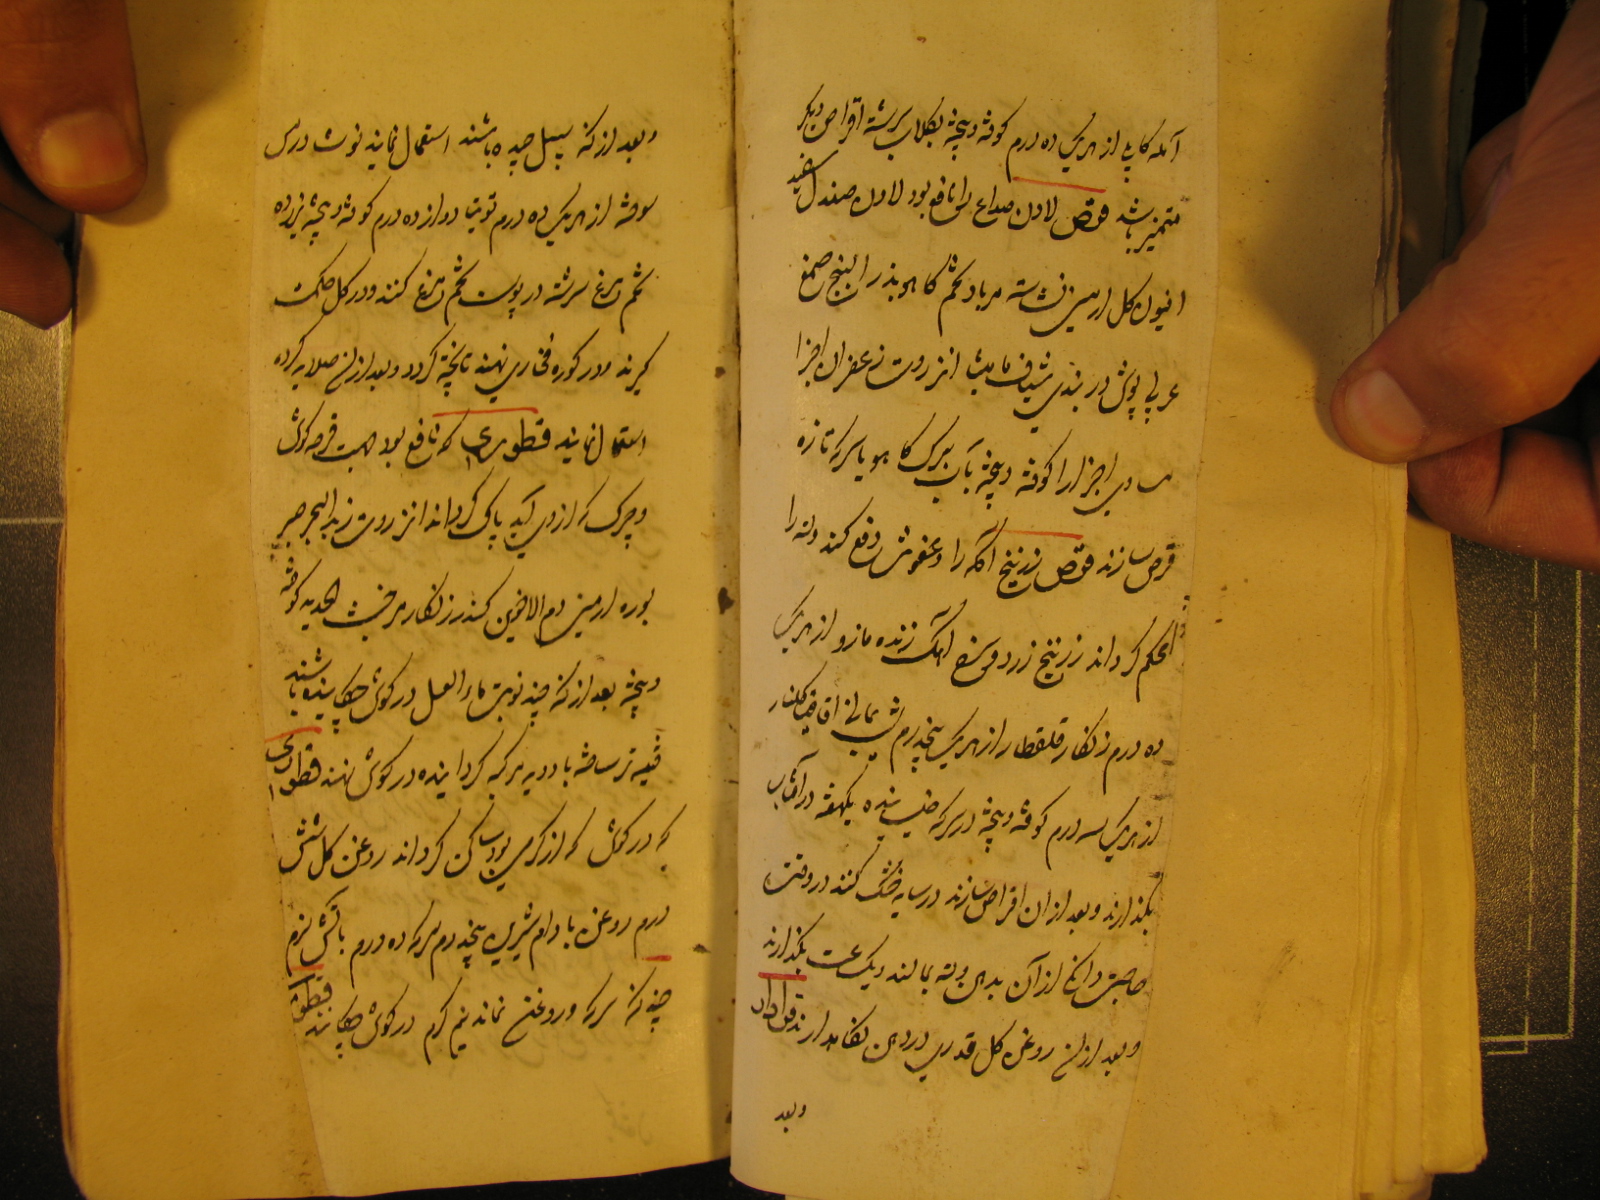 آمله کابلی از هریک ده درم کوفته و بیخته بکلاب سرشته اقراص دیکر
متمیز باشد قرص لادن صداع را نافع بود لادن صندل سفید
افیون کل ارمنی نشاسته مر باد تخم کاهو بذر البنج صمغ
عربی پوش دربندی شیاف مامیثا انزروت زعفران اجزا
مساوی اجزا را کوفته و بیخته بآب برک کاهو یا سرکه تازه
قرص سازند قرص زرنیخ آکله را و عفونتش دفع کند و لثه را
محکم کرداند زرنیخ زرد و سرخ آهک زنده مازو از هریک
ده درم زنکار قلقطار از هریک پنجدرم شب یمانی اقاقیا کلنار
از هریک سه درم کوفته و بیخته در سرکه خیسانیده یکهفته در آفتاب
بکذارند و بعد از ان اقراص سازند در سایه خشک کنند در وقت
حاجت دانکی از آن بدان و لثه بمالند و یکساعت بکذارند
و بعد از ان روغن کل قدری در دهن نکاهدارند
و بعد
و بعد از انکه سبیل چیده باشند استعمال نمایند توث
سوخته از هریک ده درم توتیا دوازده درم کوفته و بیخته بزرده
تخم مرغ سرشته در پوست تخم مرغ کنند و در کل حکمت
کیرند و در کوره فخاری نهند تا پخته کردد و بعد از ان صلایه کرده
استعمال نمایند قطوری که نافع بود جهت قرحه کوش
و چرک که از وی آید پاک کرداند انزروت زبد البحر صبر
بوره ارمنی دم الاخوین کندر زنکار مر خبث الحدید کوفته
و بیخته بعد از انکه چند نوبت ماء العسل در کوش چکانیده باشند
فتیله تر ساخته با دویه بسرکه کردانیده در کوش نهند قطوری
که در کوش که از کرمی بود ساکن کرداند روغن کل شش
درم روغن بادام شیرین پنجدرم سرکه ده درم باتش نرم
چندانکه سرکه و روغن نماند نیم کرم در کوش چکانند قطور